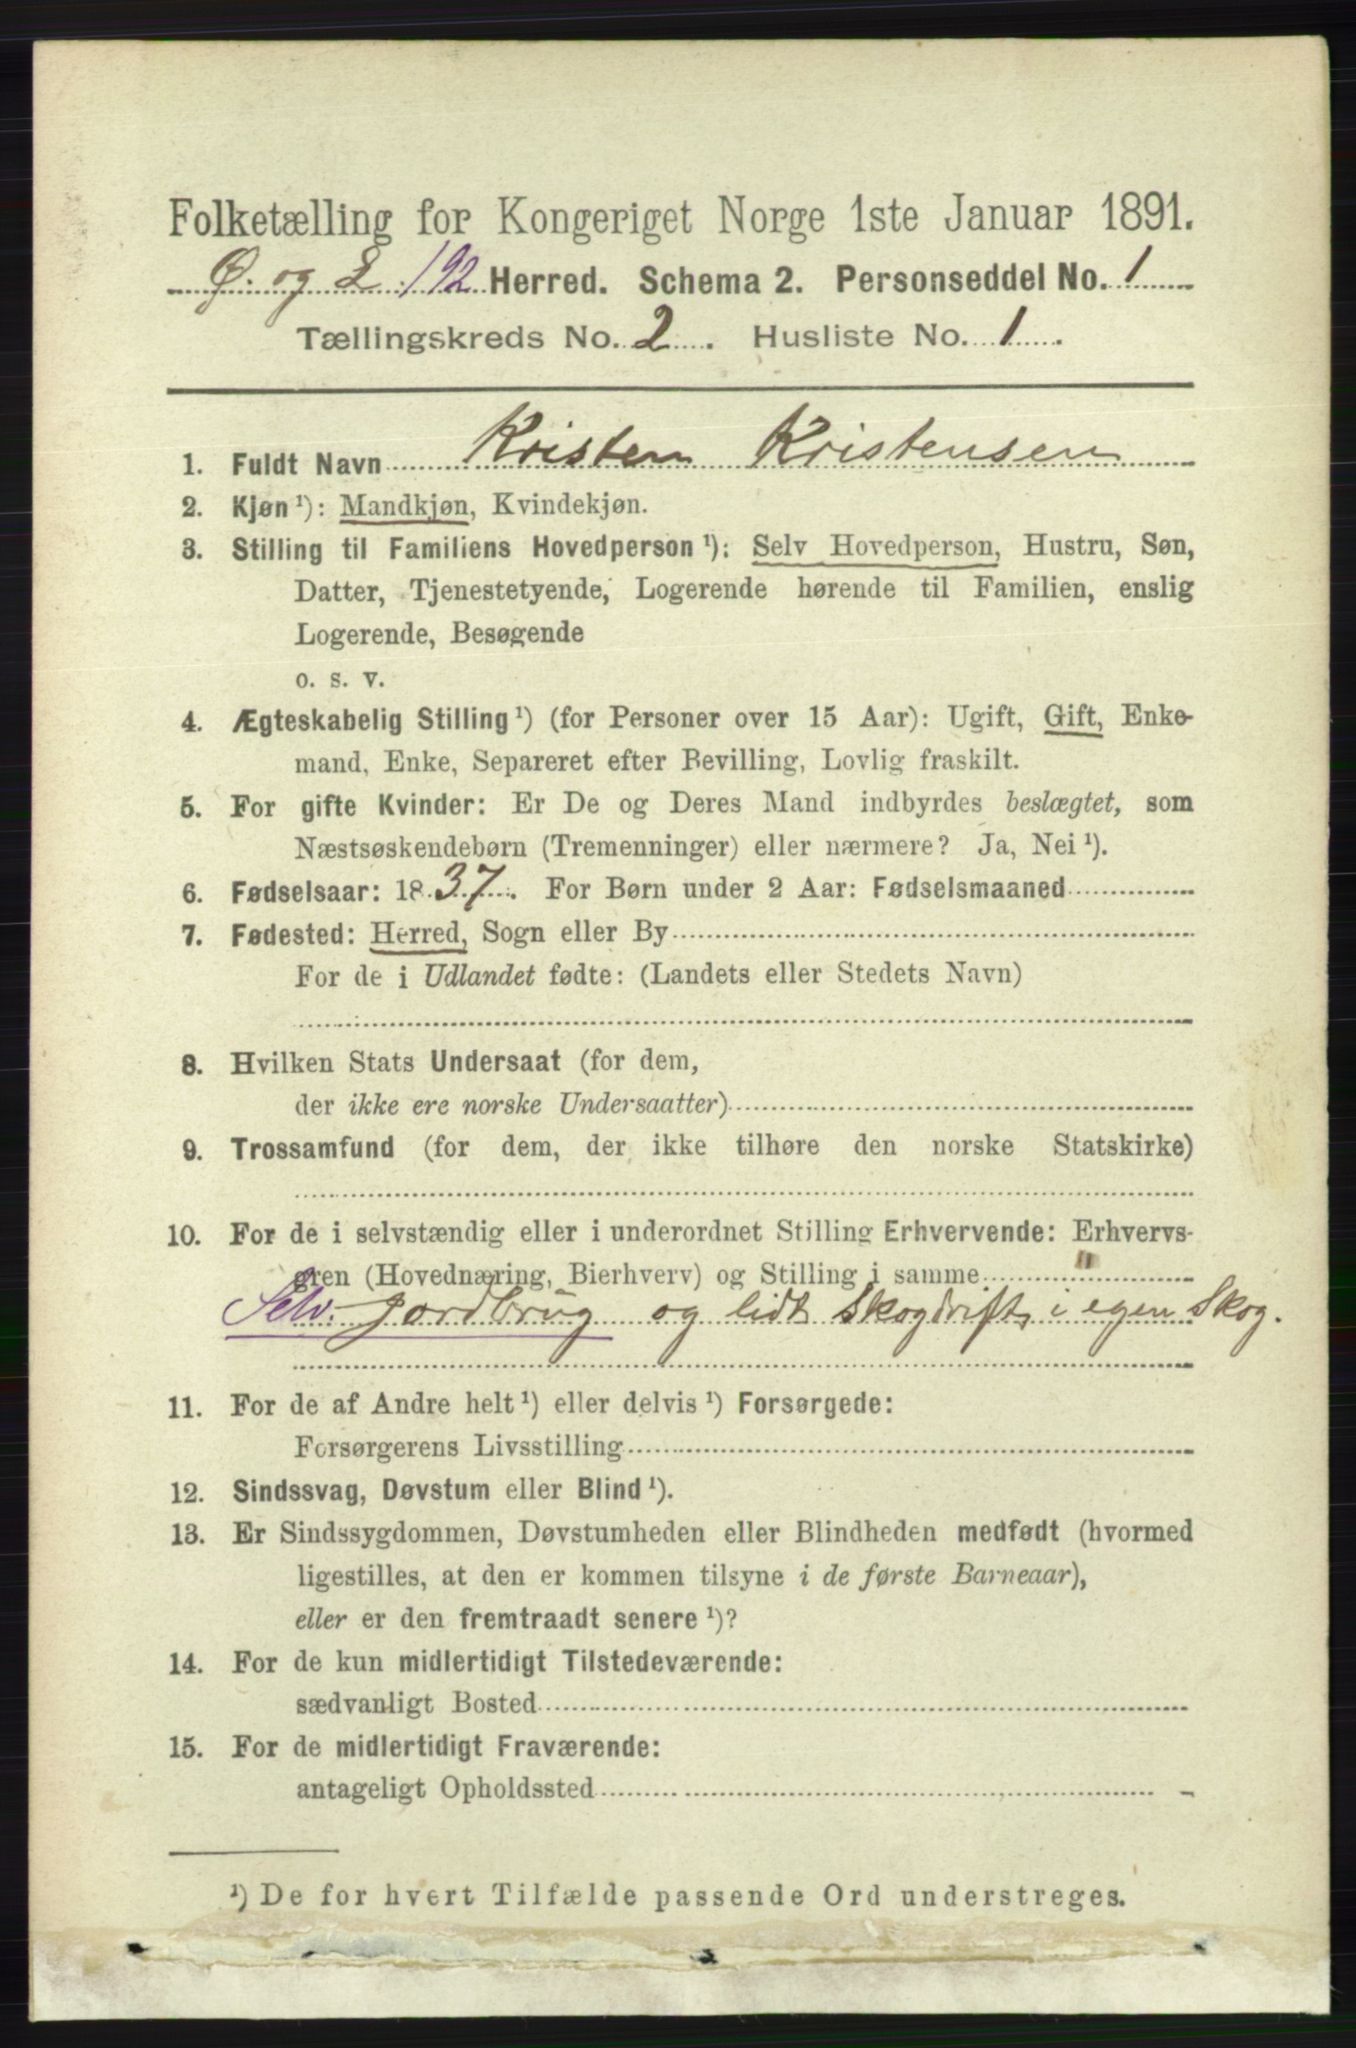 Folketælling for Kongeriget Norge 1ste Januar 1891.
Ø. og L. 192 Herred. Schema 2. Personseddel No. 1
Tællingskreds No. 2. Husliste No. 1.
1. Fuldt Navn Kristen Kristensen
2. Kjøn ¹): Mandkjøn, Kvindekjøn.
3. Stilling til Familiens Hovedperson ¹): Selv Hovedperson, Hustru, Søn,
Datter, Tjenestetyende, Logerende hørende til Familien, enslig
Logerende, Besøgende
o. s. v.
4. Ægteskabelig Stilling ¹) (for Personer over 15 Aar): Ugift, Gift, Enke-
mand, Enke, Separeret efter Bevilling, Lovlig fraskilt.
5. For gifte Kvinder: Er De og Deres Mand indbyrdes beslægtet, som
Næstsøskendebørn (Tremenninger) eller nærmere? Ja, Nei ¹).
6. Fødselsaar: 1837. For Børn under 2 Aar: Fødselsmaaned
7. Fødested: Herred, Sogn eller By
For de i Udlandet fødte: (Landets eller Stedets Navn)
8. Hvilken Stats Undersaat (for dem,
der ikke ere norske Undersaatter)
9. Trossamfund (for dem, der ikke tilhøre den norske Statskirke)
10. For de i selvstændig eller i underordnet Stilling Erhvervende: Erhvervs-
gren (Hovednæring, Bierhverv) og Stilling i samme
Selv. Jordbrug og lidt Skogdrift i egen Skog.
11. For de af Andre helt ¹) eller delvis ¹) Forsørgede:
Forsørgerens Livsstilling
12. Sindssvag, Døvstum eller Blind ¹).
13. Er Sindssygdommen, Døvstumheden eller Blindheden medfødt (hvormed
ligestilles, at den er kommen tilsyne i de første Barneaar),
eller er den fremtraadt senere ¹)?
14. For de kun midlertidigt Tilstedeværende:
sædvanligt Bosted
15. For de midlertidigt Fraværende:
antageligt Opholdssted
¹) De for hvert Tilfælde passende Ord understreges.